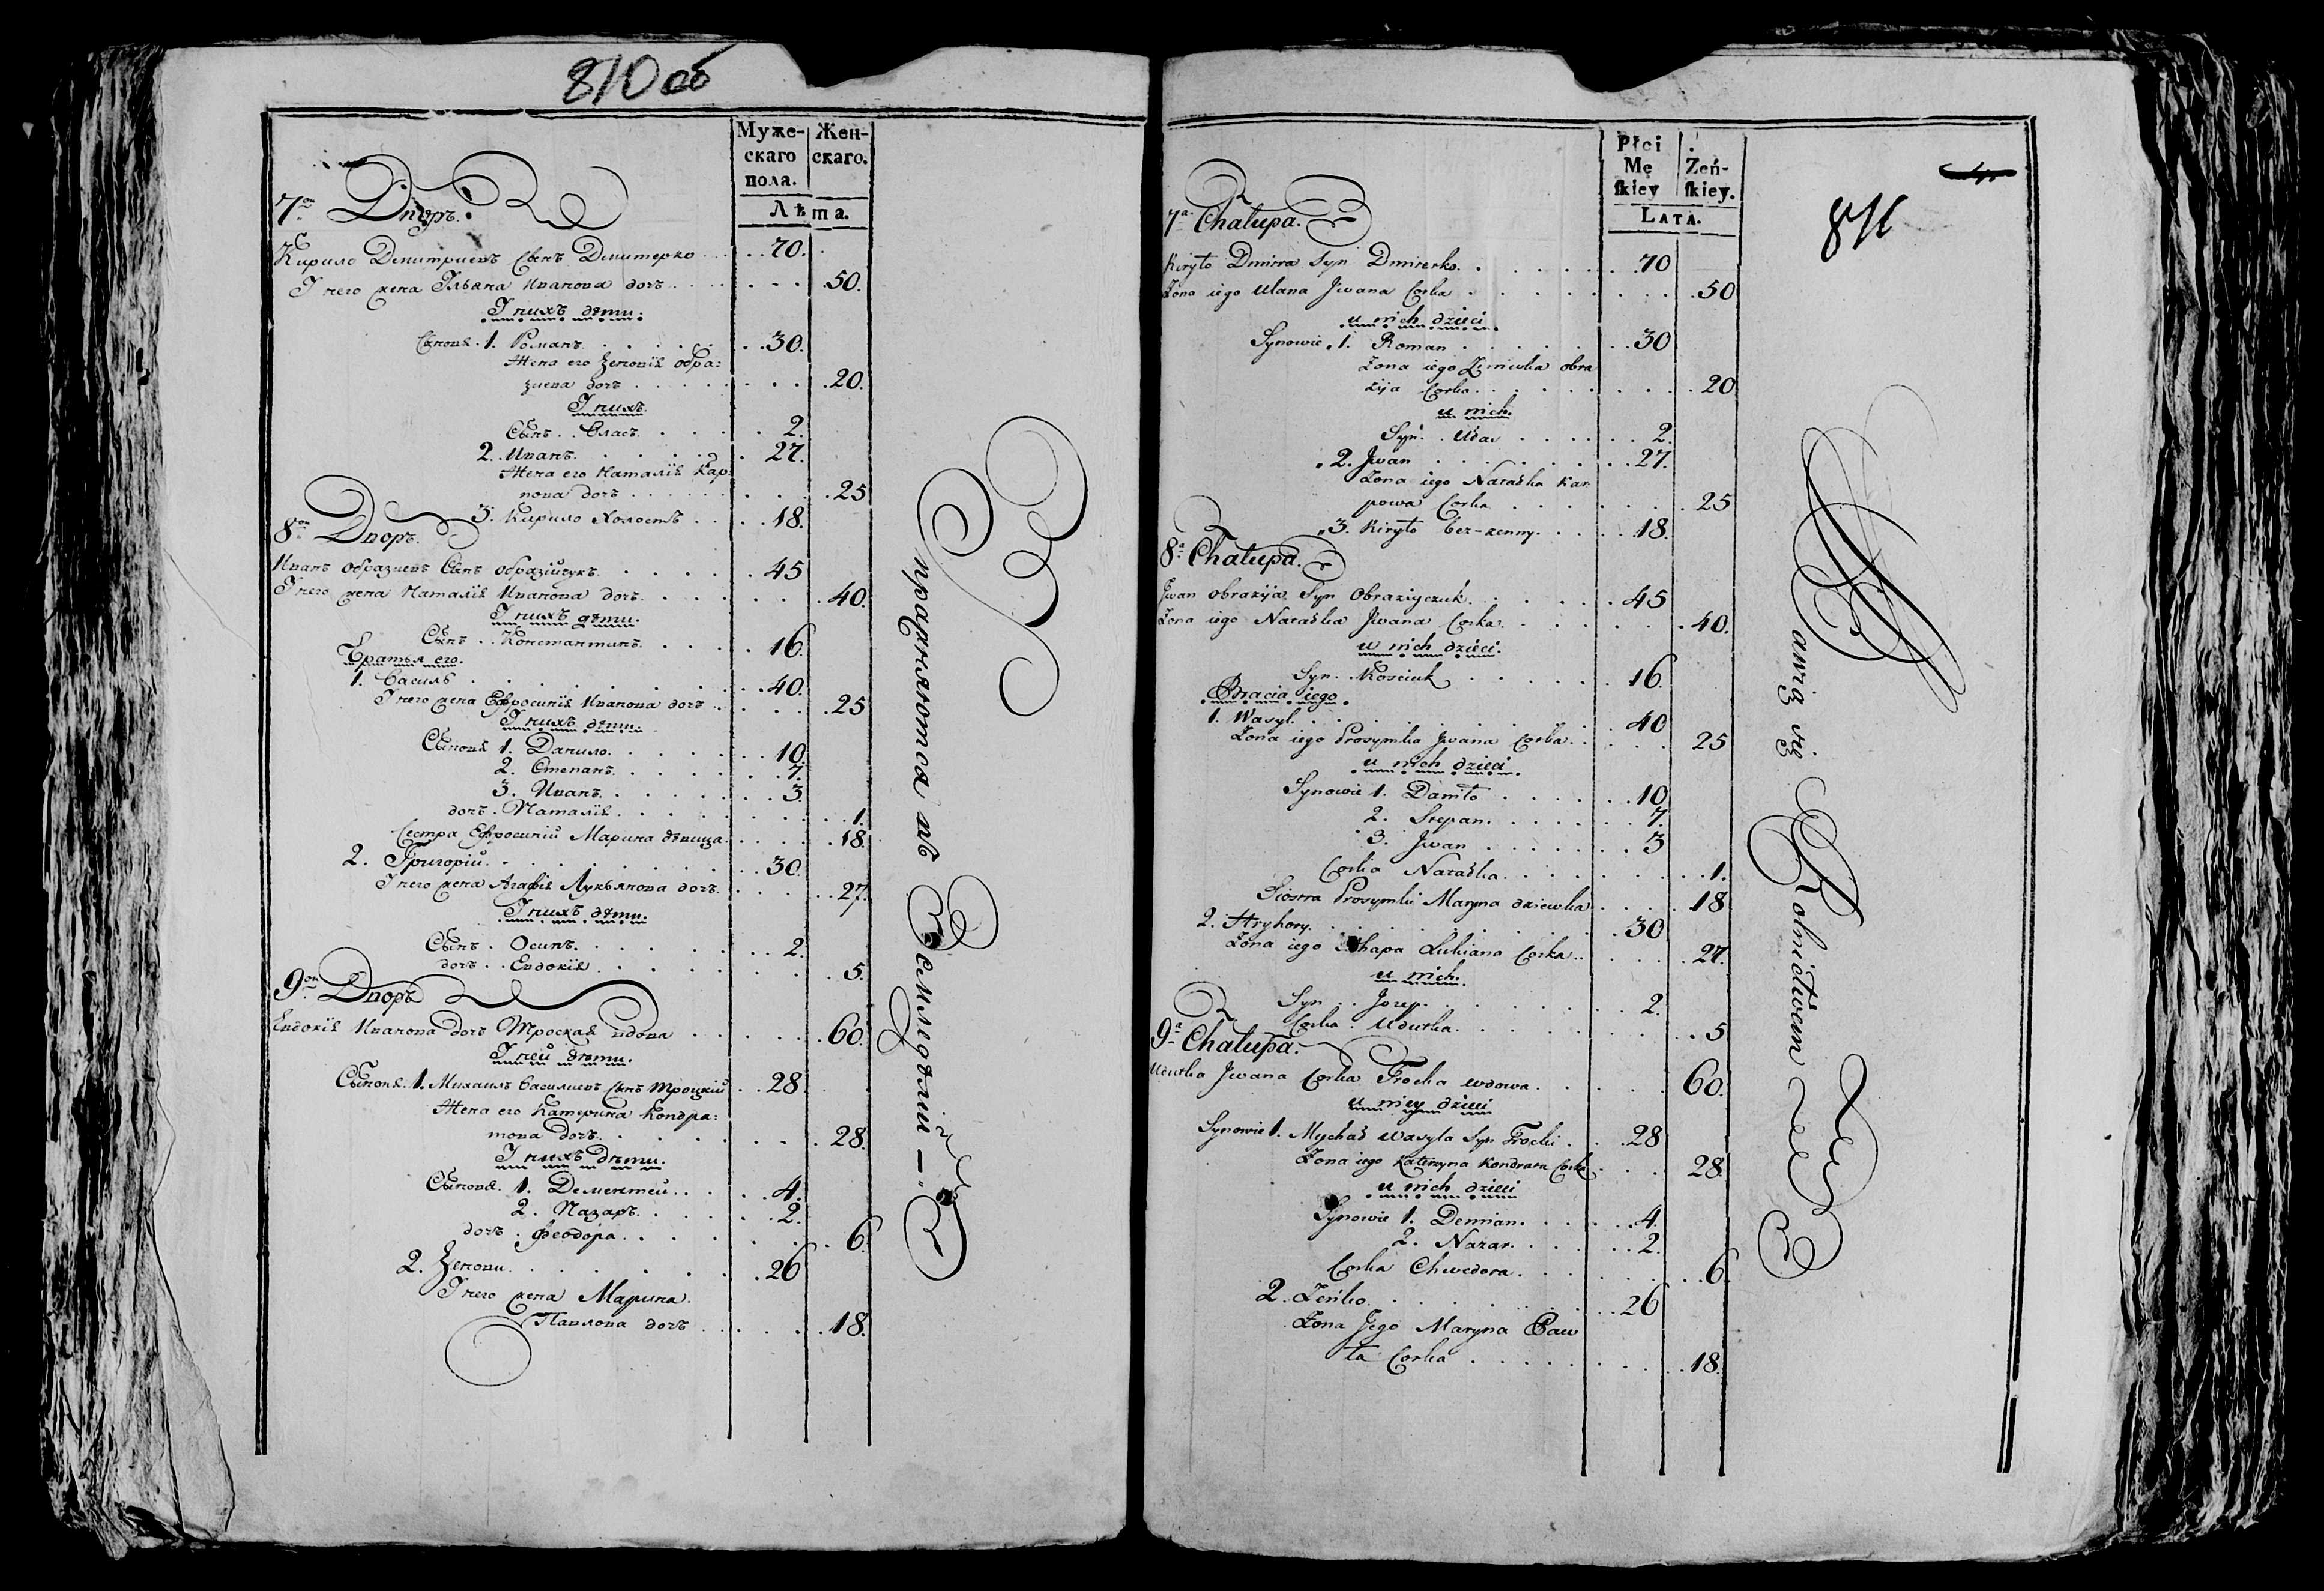 810 об
Муже-
скаго
пола.
Жен-
скаго.
Лѣта.
7ой Дворъ.
Кирило Демитриевъ Сынъ Демитерко 70.
У него жена Ульяна Иванова дочь 50.
У нихъ дѣти.
Сыновя. 1. Романъ. 30.
Жена его Зеновія обра:
зиева дочь 20.
У нихъ
Сынъ. Власъ. 2.
2. Иванъ. 27.
Жена его Наталія Кар:
пова дочь 25
3. Кирило Холостъ 18.
8ой Дворъ.
Иванъ образиевъ Сынъ образійчукъ. 45
У него жена Наталія Иванова дочь. 40.
У нихъ дѣти.
Сынъ. Константинъ. 16.
Братья его.
1. Василь 40.
У него жена Ефросинія Иванова дочь 25
У нихъ дѣти.
Сыновя 1. Данило. 10.
2. Степанъ. 7.
3. Иванъ. 3.
дочь. Наталія. 1.
Сестра Ефросиніи Марина дѣвица. 18.
2. Григорій. 30.
У него жена Агафія Лукьянова дочь. 27.
У нихъ дѣти.
Сынъ. Осипъ. 2.
дочь. Евдокія 5.
9ой Дворъ
Евдокія Иванова дочь Троцкая вдова 60.
У ней дѣти.
Сыновя. 1. Михаилъ Василиевъ Сынъ Троцкій 28.
Жена его Катерина Кондра:
това дочь. 28.
У нихъ дѣти.
Сыновя. 1. Дементей. 4.
2. Назаръ. 2.
дочь. Феодора. 6.
2. Зенови. 26
У него жена Марина
Павлова дочь 18.
Упражняются въ Земледѣлии
811
Płci
Mę
ſkiey
Żeń-
ſkiey.
LATA.
7a Chałupa.
Kiryło Dmitra Syn Dmiterko. 70
Żona iego Ulana Jwana Corka 50
u nich dzieci
Synowie 1. Roman 30
Żona iego Zieniewka obra
zija Corka. 20
u nich.
Syn. Ułas 2.
2. Jwan 27.
Żona iego Natałka Kar
powa Corka 25
3. Kiryło bez-żenny. 18.
8a Chałupa.
Jwan obrazija Syn Obraziyczuk. 45
Żona iego Natałka Jwana Corka. 40.
u nich dzieci.
Syn. Kościuk 16.
Bracia iego.
1. Wasyl. 40
Żona iego Prosymka Jwana Corka. 25
u nich dzieci.
Synowie 1. Daniło 10
2. Stepan. 7.
3. Jwan 3
Corka Natałka. 1.
Siostra Prosymki Maryna dziewka 18
2. Hryhory. 30
Żona iego Ahapa Łukiana Corka. 27.
u nich.
Syn. Jozep. 2.
Corka. Udutka. 5
9a Chałupa.
Udutka Jwana Corka Trocka wdowa. 60.
u niey dzieci
Synowie 1. Mychał Wasyla Syn Trocki. 28
Żona iego Katerzyna Kondrata Corka 28.
u nich dzieci
Synowie 1. Demian. 4.
2. Nazar. 2.
Corka Chwedora. 6.
2. Zeńko. 26
Żona Jego Maryna Paw
ła Corka 18.
Bawią się Rolnictwem